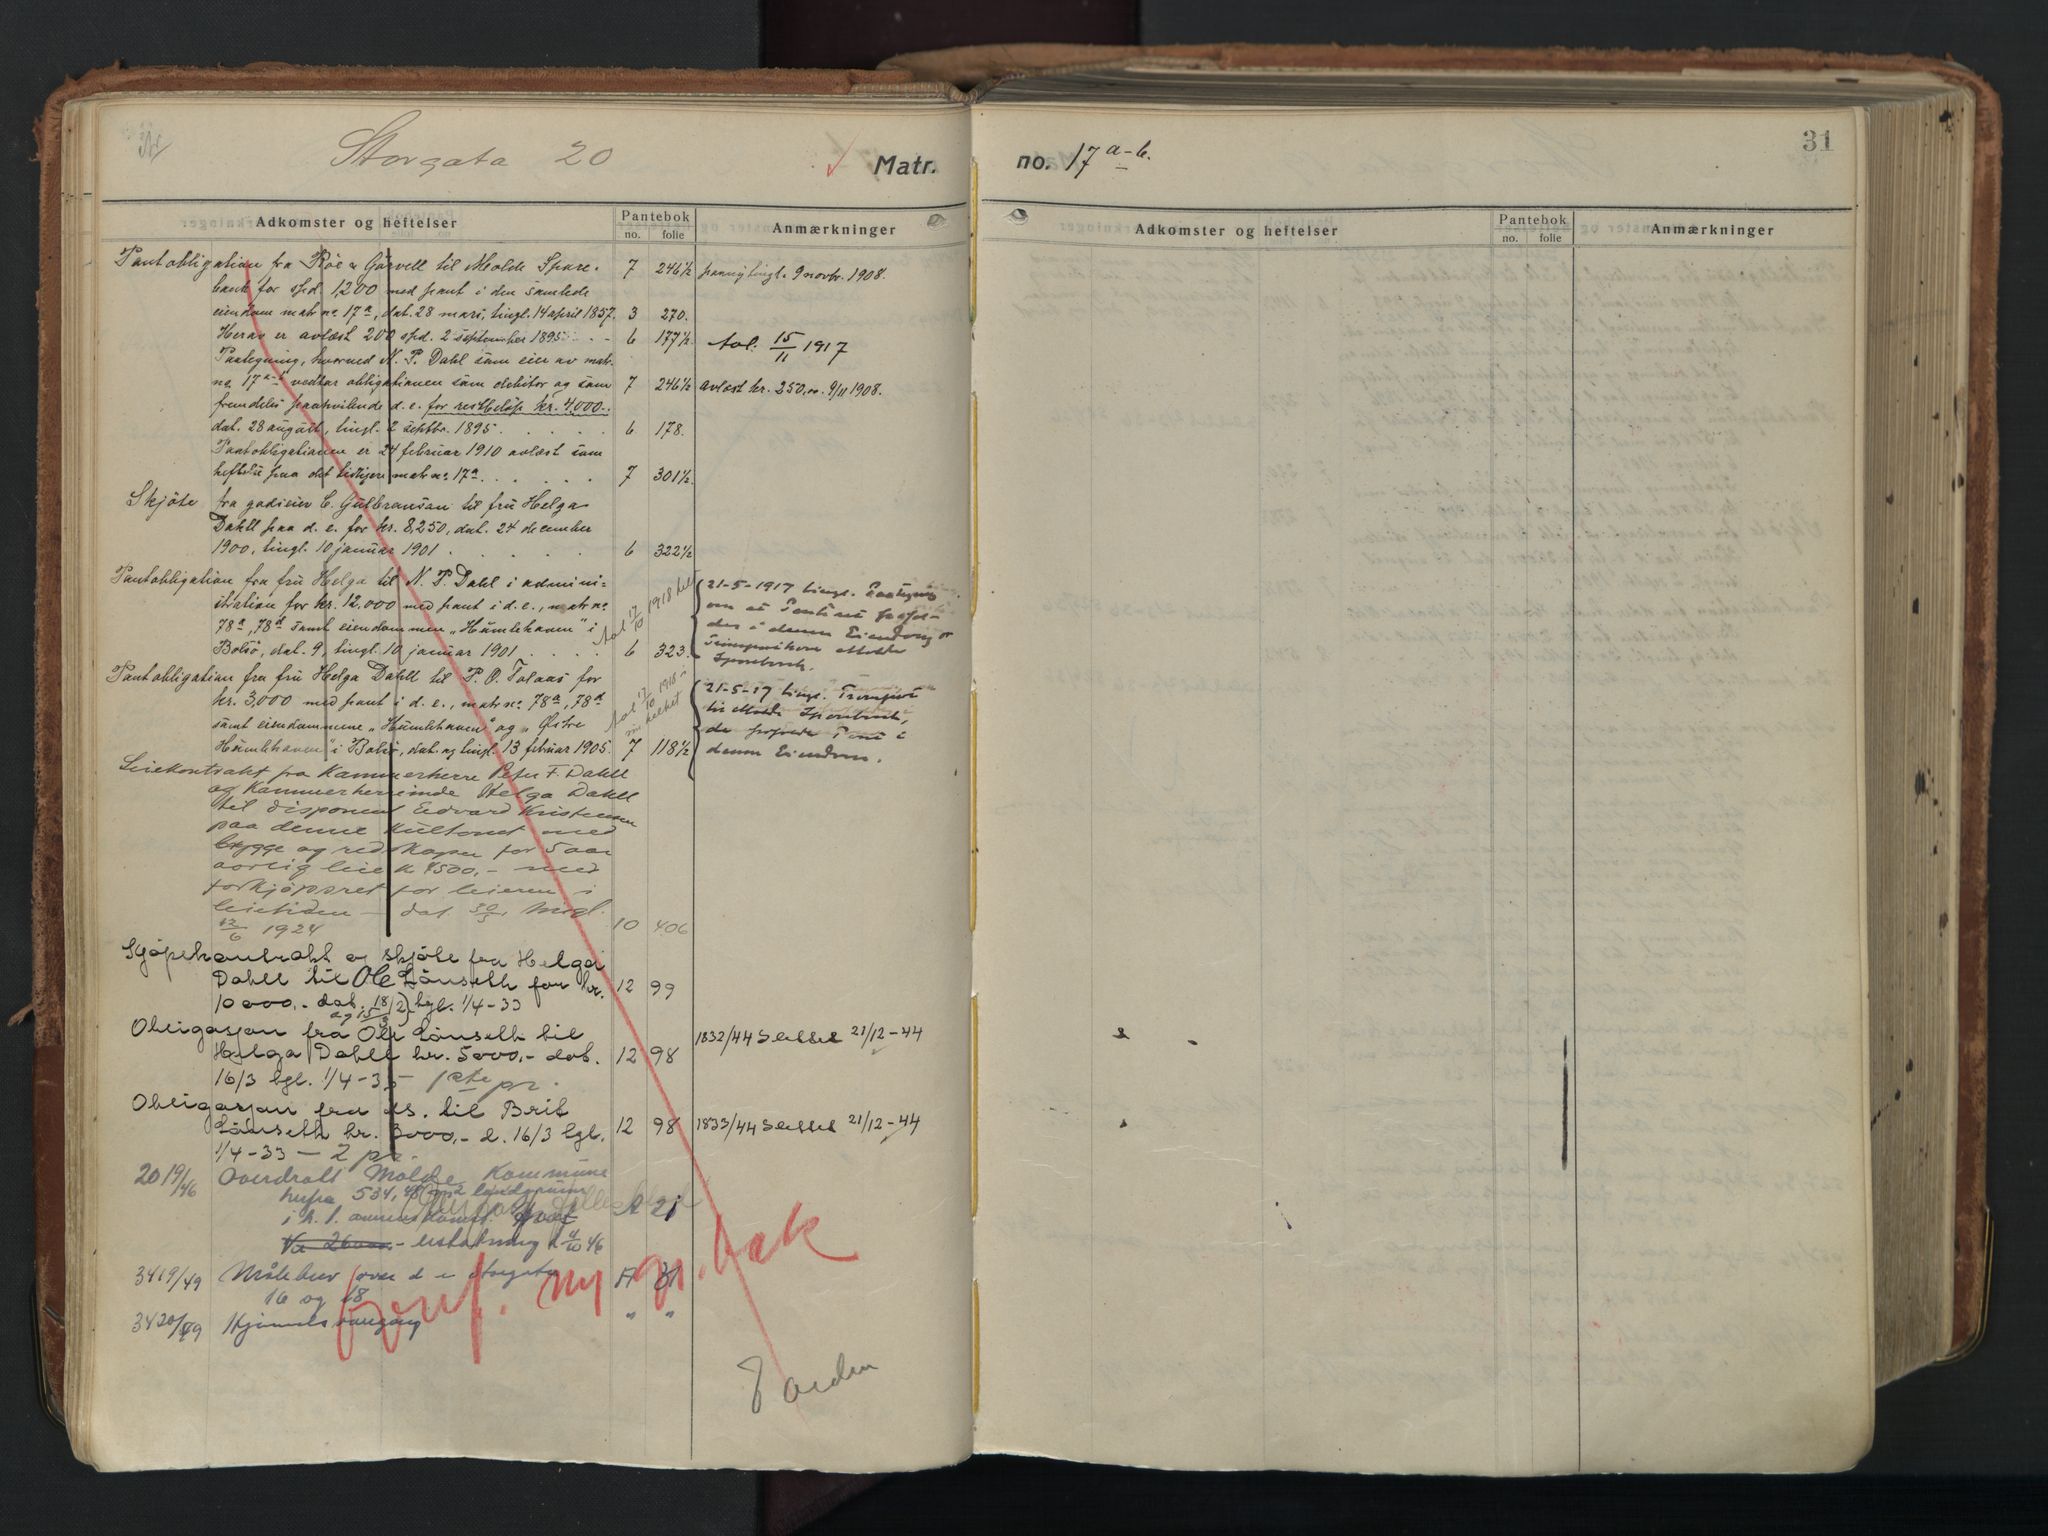 Storgata 20
Matr. no. 17 a-b.
31
Adkomster og heftelser
Pantebok
no. folie
Anmærkninger
Adkomster og heftelser
Pantebok
no. folie
Anmærkninger
Pantobligation fra Röe & Görvell til Molde Spare- 7 246½ paanytingl. 9 novbr. 1908.
bank for spd. 1200 med pant i den samlede
eiendom matr no. 17a, dat. 28 mars, tingl. 14 april 1857. 3 270.
Herav er avlæst 200 spd. 2 september 1895 6 177½ Avl. 15/11 1917
Paategning, hvorved N. P. Dahl som eier av matr.
no. 17 a-b vedtar obligationen som debitor og som 7 246½ avlæst kr. 250.00. 9/11 1908.
fremdeles paahvilende d. e. for restbeløp kr. 4,000.-
dat. 28 august, tingl. 2 septbr. 1895. 6 178.
Pantobligationen er 24 februar 1910 avlæst som
heftelse paa det tidligere matr no. 17a. 7 301½
Skjöte fra gadeeier C. Gulbransan til fru Helga
Dahll paa d. e. for kr. 8,250, dat. 24 december
1900, tingl. 10 januar 1901 6 322½
Pantobligation fra fru Helga til N. P. Dahl i admini-
stration for kr. 12,000 med pant i d. e., matr no.
78a, 78d samt eiendommen "Humlehaven" i
Bolsö, dat. 9, tingl. 10 januar 1901 6 323.
Avl 17/10 1918
21-5-1917 tingl. Paategning
om at Pantet
i denne Eiendom
Molde
Sparebank.
Pantobligation fra fru Helga Dahll til P. O. Tolaas for
kr. 3,000 med pant i d. e., matr no. 78a, 78d
samt eiendommene "Humlehaven" og "Østre
Humlehaven" i Bolsö, dat. og tingl. 13 februar 1905. 7 118½
Avl 17/10 1918
21-5-17 tingl. Transport
til Molde Sparebank,
Pant i
denne Eiendom.
Leiekontrakt fra Kammerherre Peter F. Dahll
og Kammerherreinde Helga Dahll
til disponent Edvard Kristensen
paa denne
brygge og redskaper for 5 aar
aarlig leie kr 4500,- med
forkjöpsret for leieren i
leietiden - dat. 30/5, tingl.
12/6 1924 10 406
Kjöpekontrakt og skjöte fra Helga
Dahll til Ole Lönseth for kr. 12 99
10000,- dat. 18/2 og 15/3 tgl. 1/4-33
Obligasjon fra Ole Lönseth til
Helga Dahll kr. 5000,- dat. 12 98 1832/44 Slettet 21/12-44
16/3 tgl. 1/4-33 - 1ste pr.
Obligasjon fra ds. til Brit
Lönseth kr. 3000,- d. 16/3 tgl. 12 98 1833/44 Slettet 21/12-44
1/4-33 - 2 pr.
2019/46 Overdratt Molde Kommune
534,48 m2
A 21
46
3419/49 Målebrev over d e Storgata A 31
16 og 18
3420/49 Hjemmelsovergang " "
Overf. ny gr. bok